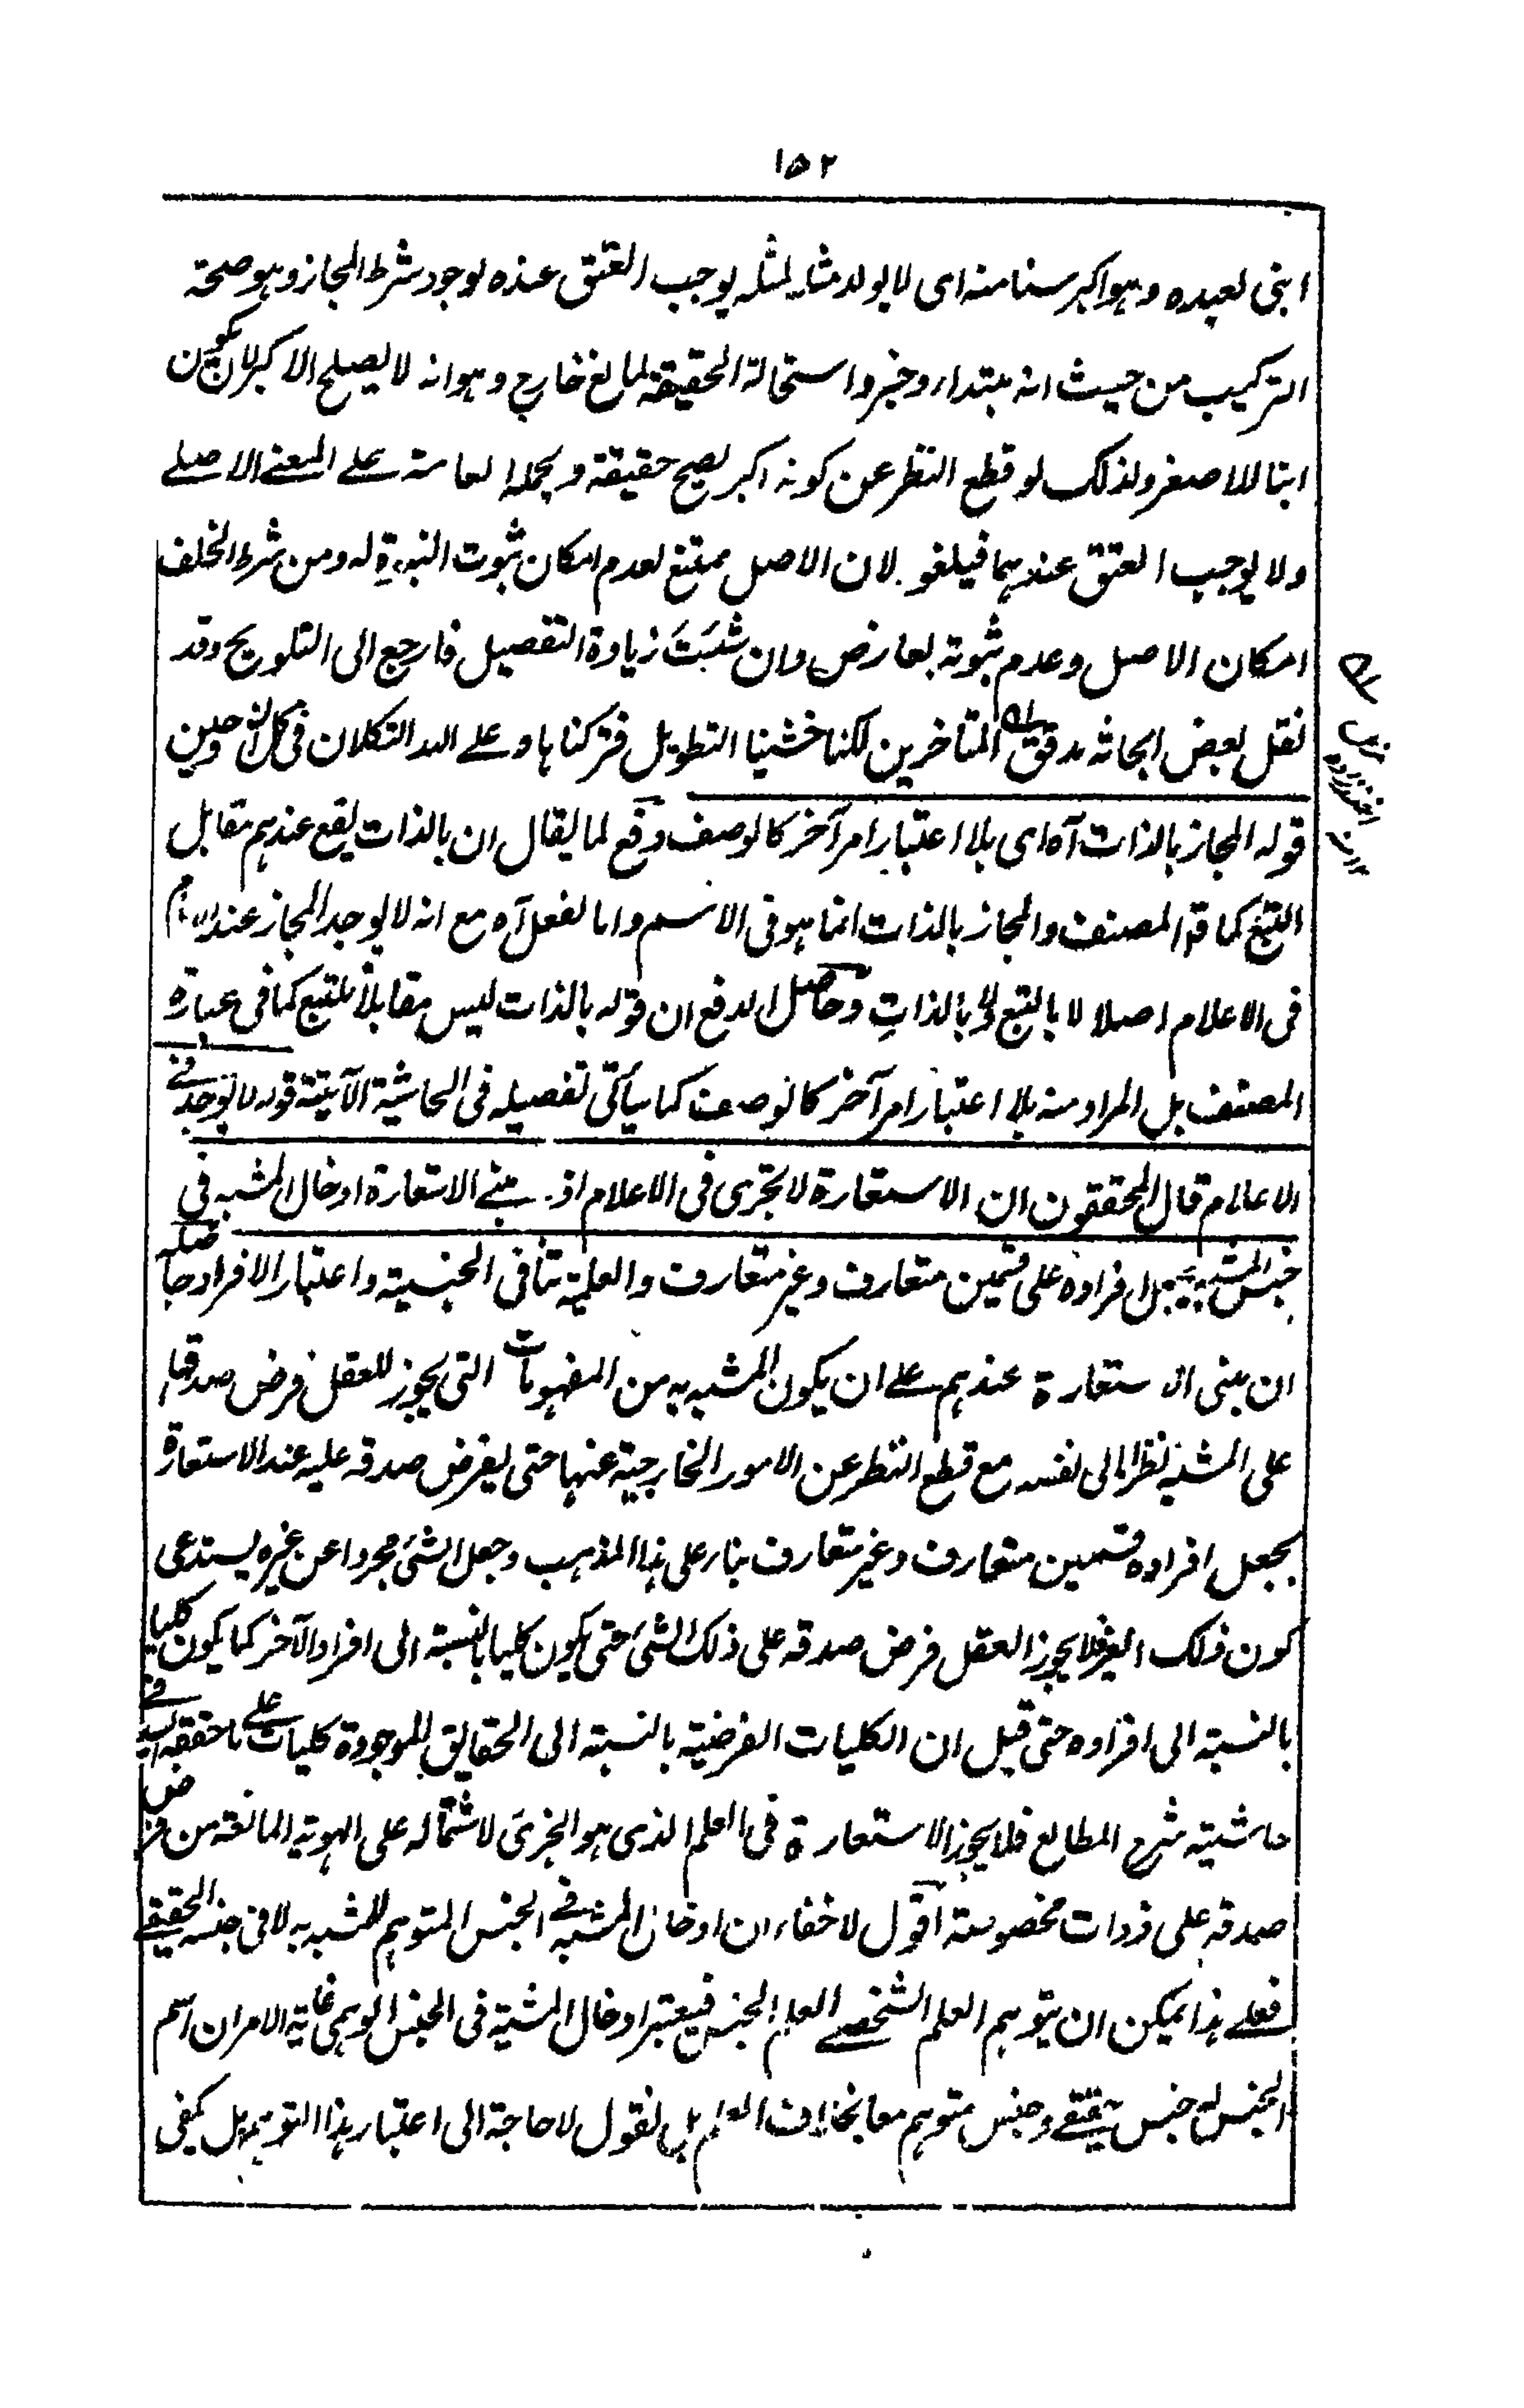 ١٥٢
ابنی لعبده وہو اکبر سنا منه ای لا یولد مثله لمثله یوجب العتق عنده لوجود شرط المجاز وہو صحة
الترکیب من حیث انه مبتدا وخبر واستحالة الحقیقة لمانع خارج وہو انه لا یصلح الاکبر لان یکون
ابنا للاصغر ولذلک لو قطع النظر عن کونه اکبر یصح حقیقة ویحمله العامة علی المعنی الاصلی
ولا یوجب العتق عندہما فیلغو لان الاصل ممتنع لعدم امکان ثبوت البنوة له ومن شرط الخلف
امکان الاصل وعدم ثبوته لعارض وان شئت زیادة التفصیل فارجع الی التلویح وقد
نقل بعض ابحاثه مدقق المتاخرین لکنا خشینا التطویل فترکناہا وعلی الله التکلان فی کل وحین
قوله المجاز بالذات آه ای بلا اعتبار امر آخر کالوصف دفع لما یقال ان بالذات یقع عندہم مقابل
التبع کما قال المصنف والمجاز بالذات انما ہو فی الاسم واما الفعل آه مع انه لا یوجد المجاز عندہم
فی الاعلام اصلا لا بالتبع ولا بالذات وحاصل الدفع ان قوله بالذات لیس مقابلا للتبع کما فی عبارة
المصنف بل المراد منه بلا اعتبار امر آخر کالوصف کما سیأتی تفصیله فی الحاشیة الآتیة قوله لا یوجد فی
الاعلام قال المحققون ان الاستعارة لا تجری فی الاعلام اذ مبنی الاستعارة ادخال المشبه فی
جنس المشبه به بجعل افراده علی قسمین متعارف وغیر متعارف والعلمیة تنافی الجنسیة واعتبار الافراد حاصله
ان مبنی الاستعارة عندہم علی ان یکون المشبه به من المفہومات التی یجوز للعقل فرض صدقہا
علی المشبه نظرا الی نفسه مع قطع النظر عن الامور الخارجیة عنہا حتی یفرض صدقه علیه عند الاستعارة
بجعل افراده قسمین متعارف وغیر متعارف بناء علی ہذا المذہب وجعل الشئ مجردا عن غیره یستدعی
کون ذلک الغیر فلا یجوز العقل فرض صدقه علی ذلک الشئ حتی یکون کلیا بالنسبة الی افراد الآخر کما یکون کلیا
بالنسبة الی افراده حتی قیل ان الکلیات الفرضیة بالنسبة الی الحقایق الموجودة کلیات علی ما حققه السید فی
حاشیة شرح المطالع فلا یجوز الاستعارة فی العلم الذی ہو الجزئی لاشتماله علی الہویة المانعة من فرض
صدقه علی ذوات مخصوصة اقول لا خفاء ان ادخال المشبه فی الجنس المتوہم للمشبه به لا فی جنسه الحقیقی
فعلی ہذا یمکن ان یتوہم العلم الشخصی العلم الجنس فیعتبر ادخال المشبه فی الجنس الوہمی غایة الامر ان اسم
الجنس له جنس حقیقی وجنس متوہم معا بخلاف العلم بل نقول لا حاجة الی اعتبار ہذا التوہم بل یکفی